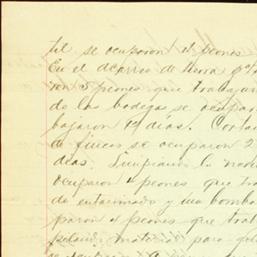 til se ocuparon 11 peones
En el acarreo de tierra
ron 5 peones que trabaja
de las bodegas se ocupar
bajaron 19 días. Corta
de fincos se ocuparon 2
días. Limpiando la
ocuparon 4 peones que tra
de entarimado y una bomba
paron 4 peones que trat
material para